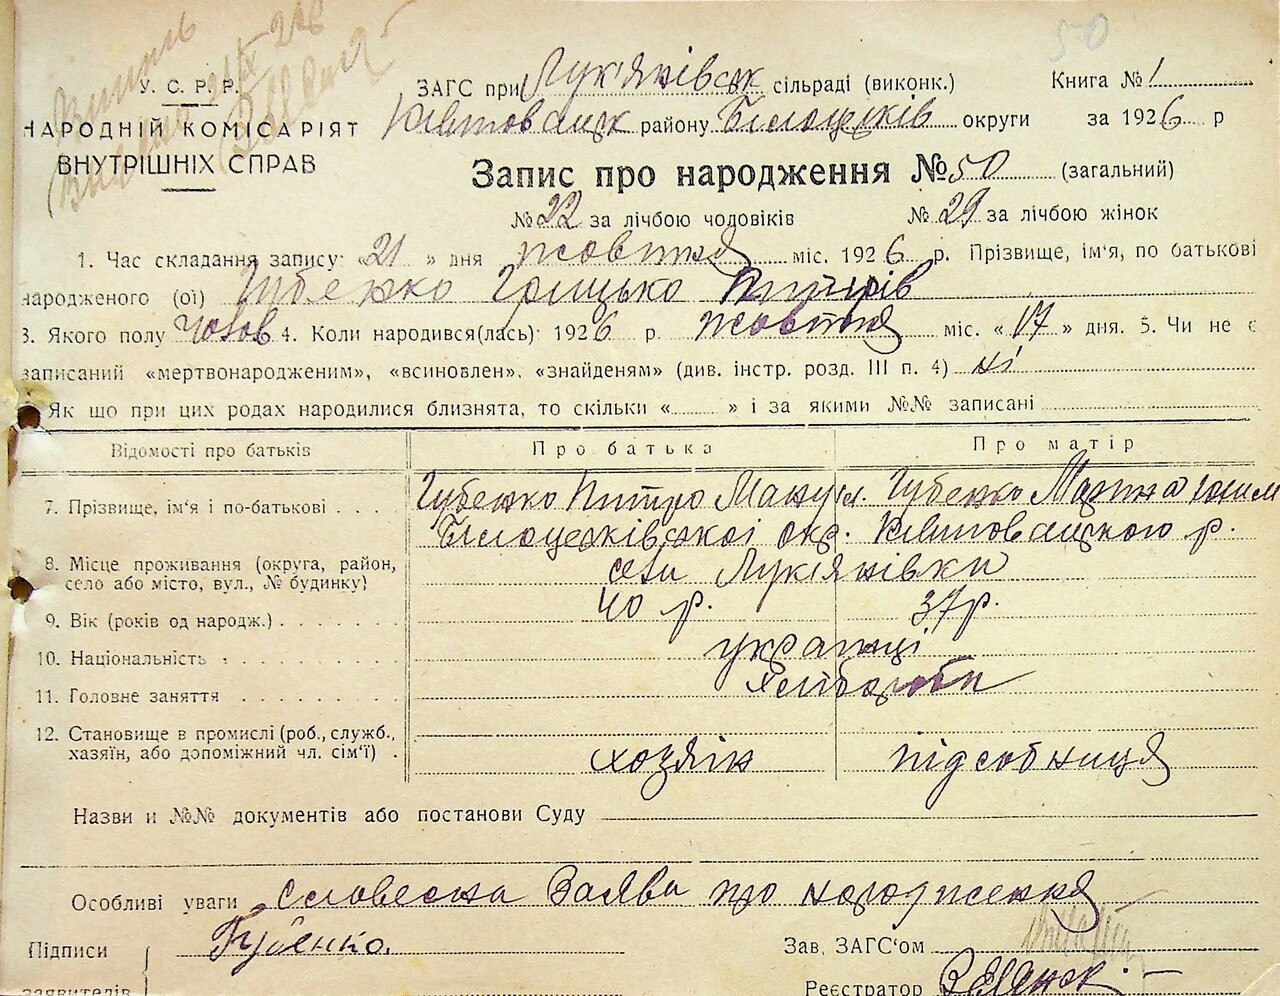 50
У. С. Р. Р.
НАРОДНІЙ КОМІСАРІЯТ
ВНУТРІШНІХ СПРАВ
ЗАГС при Лук'янівськ сільраді (виконк.) Книга № 1
району Білоцерків округи за 1926 р
Запис про народження № 50 (загальний)
№ 22 за лічбою чоловіків № 29 за лічбою жінок
1. Час складання запису: «21» дня жовтня міс. 1926 р. Прізвище, ім'я, по батькові
народженого (ої) Губенко Грицько Питрів
3. Якого полу чолов 4. Коли народився(лась) 1926 р. жовтня міс. «17» дня. 5. Чи не є
записаний «мертвонародженим», «всиновлен», «знайденям» (див. інстр. розд. III п. 4) ні
Як що при цих родах народилися близнята, то скільки « » і за якими №№ записані
Відомості про батьків Про батька Про матір
7. Прізвище, ім'я і по-батькові . . . Губенко Питро Ману Губенко
Білоцерківської окр. р.
8. Місце проживання (округа, район,
село або місто, вул., № будинку) села Лук'янівки
9. Вік (років од народж.) . . . . . . . 40 р. 37 р.
10. Національність . . . . . . . . . . українці
11. Головне заняття . . . . . . . . . хлібороби
12. Становище в промислі (роб., служб.,
хазяїн, або допоміжний чл. сім'ї) . хозяїн підсобниця
Назви и №№ документів або постанови Суду
Особливі уваги словесна заява про народження
Підписи Губенко. Зав. ЗАГС'ом
заявителів Реєстратор